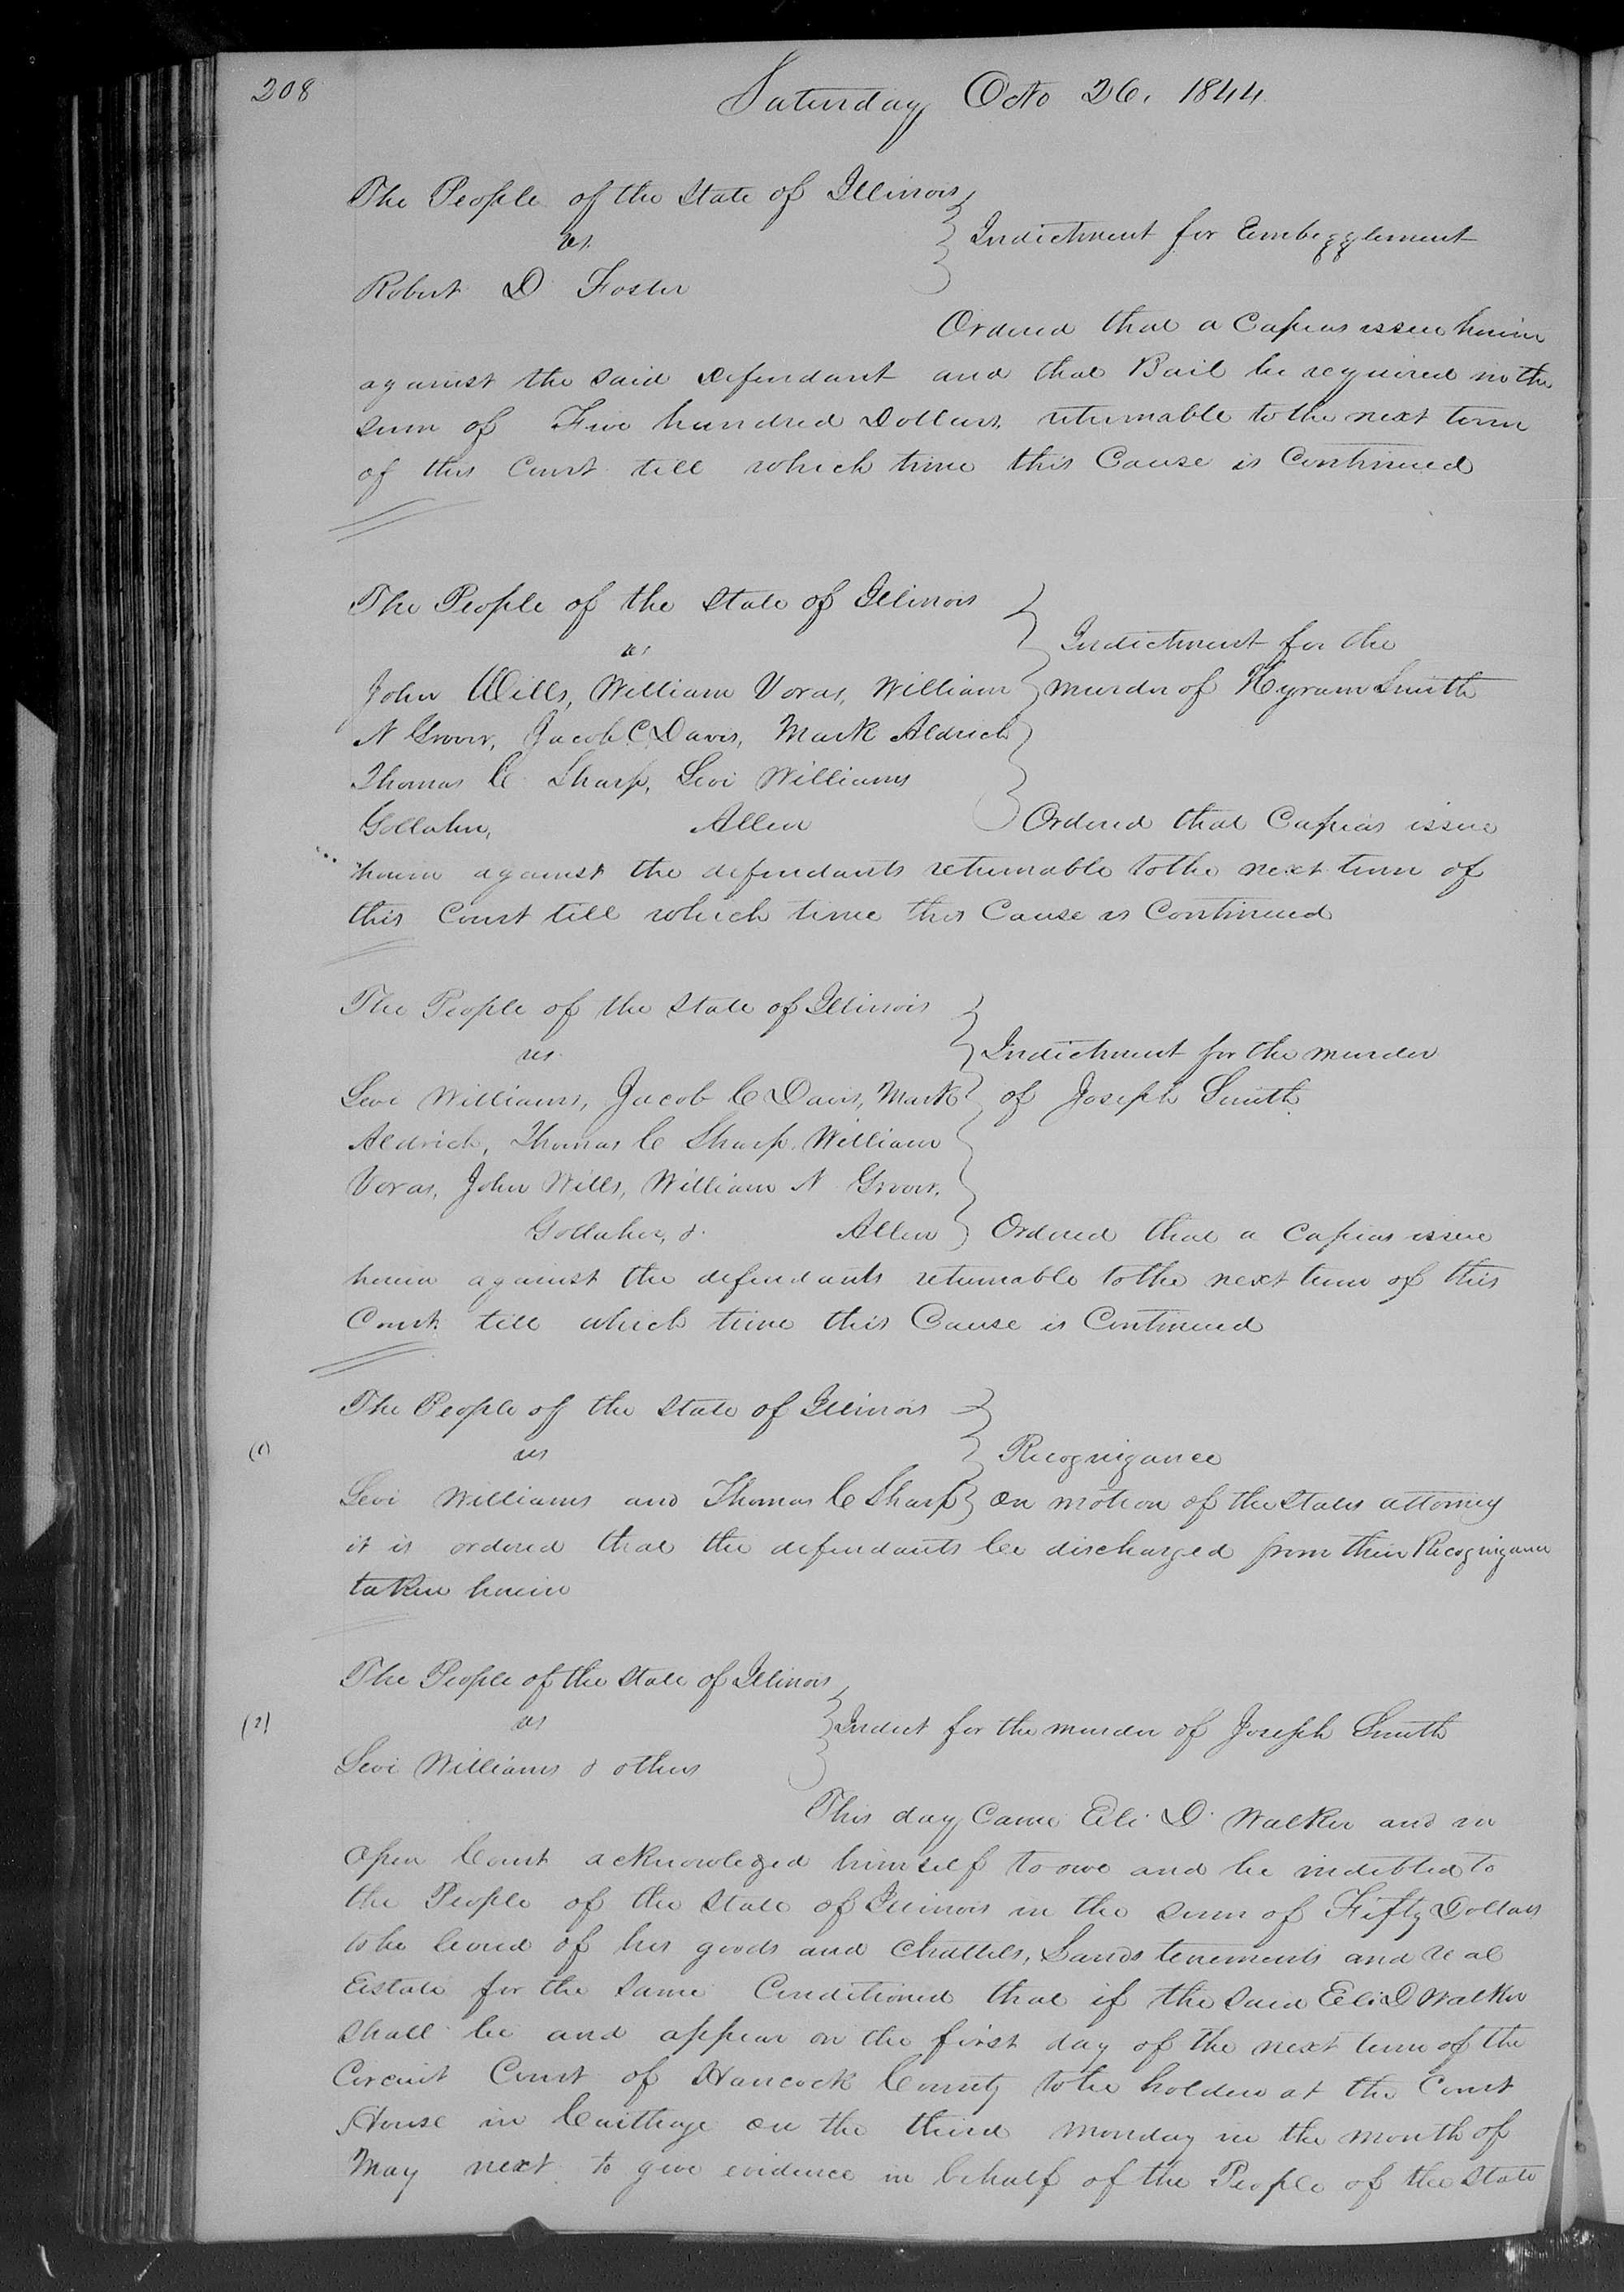 208
Saturday Octo 26. 1844
The People of the State of Illinois
vs.
Indictment for Embezzlement
Robert D Foster
Ordered that a Capias issue herein
against the said defendant and that Bail be required in the
sum of Five hundred Dollars, returnable to the next term
of this Court till which time this Cause is Continued
The People of the State of Illinois
vs
Indictment for the
John Wills, William Voras, William
murder of Hyrum Smith
N Grover, Jacob C Davis, Mark Aldrich
Thomas C Sharp, Levi Williams
Gollaher, Allen
Ordered that Capias issue
herein against the defendants returnable to the next term of
this Court till which time this Cause is Continued
The People of the State of Illinois
vs.
Indictment for the murder
Levi Williams, Jacob C Davis, Mark
of Joseph Smith
Aldrich, Thomas C Sharp, William
Voras, John Wills, William N Grover,
Gollaher, & Allen
Ordered that a Capias issue
herein against the defendants returnable to the next term of this
Court till which time this Cause is Continued
The People of the State of Illinois
(1)
vs
Recognizance
Levi Williams and Thomas C Sharp
On motion of the States attorney
it is ordered that the defendants be discharged from their Recognizance
taken herein
The People of the State of Illinois
(2)
vs
Indict for the murder of Joseph Smith
Levi Williams & others
This day Came Eli D. Walker and in
Open Court acknowledged himself to owe and be indebted to
the People of the State of Illinois in the sum of Fifty Dollars
to be levied of his goods and Chattels, Lands tenements and real
Estate for the same Conditioned that if the said Eli D Walker
shall be and appear on the first day of the next term of the
Circuit Court of Hancock County to be holden at the Court
House in Carthage on the third monday in the month of
May next to give evidence in behalf of the People of the State